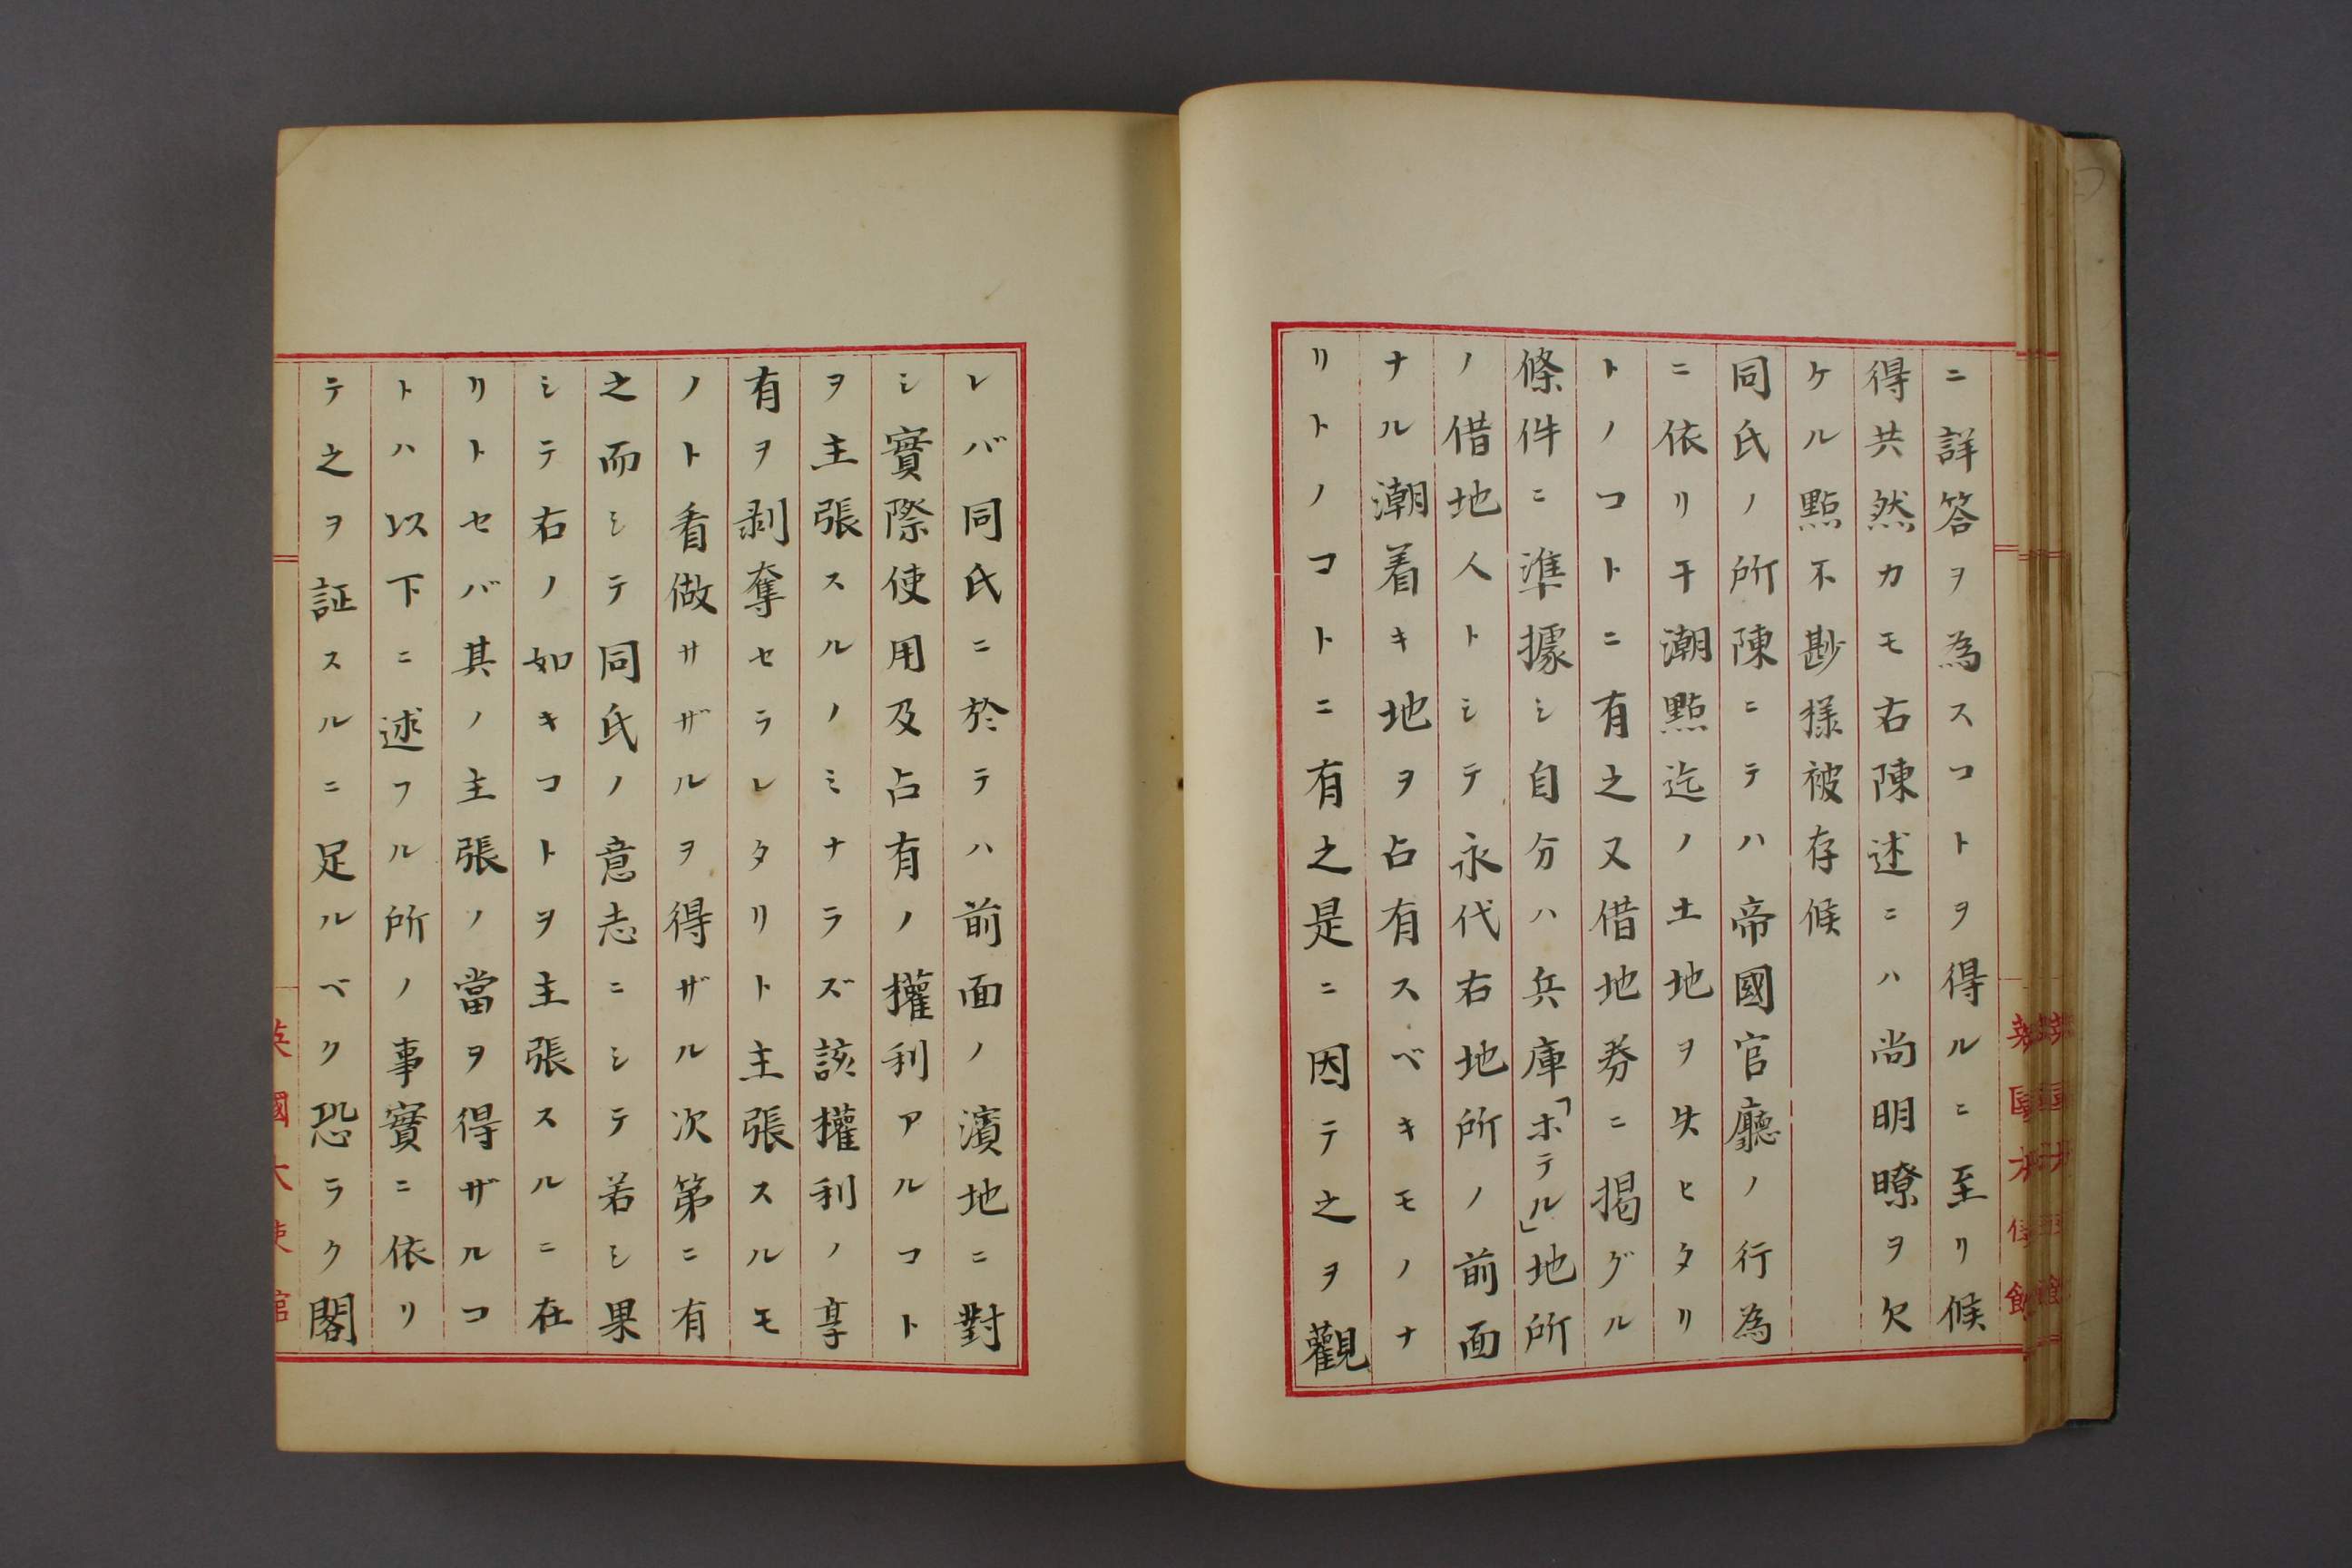 ニ詳答ヲ為スコトヲ得ルニ至リ候
得共然カモ右陳述ニハ尚明瞭ヲ欠
ケル點不尠樣被存候
同氏ノ所陳ニテハ帝國官廳ノ行為
ニ依リ干潮點迄ノ土地ヲ失ヒタリ
トノコトニ有之又借地券ニ掲グル
條件ニ準據シ自分ハ兵庫「ホテル」地所
ノ借地人トシテ永代右地所ノ前面
ナル潮着キ地ヲ占有スベキモノナ
リトノコトニ有之是ニ因テ之ヲ觀
レバ同氏ニ於テハ前面ノ濱地ニ對
シ實際使用及占有ノ權利アルコト
ヲ主張スルノミナラズ該權利ノ享
有ヲ剥奪セラレタリト主張スルモ
ノト看做サザルヲ得ザル次第ニ有
之而シテ同氏ノ意志ニシテ若シ果
シテ右ノ如キコトヲ主張スルニ在
リトセバ其ノ主張ノ當ヲ得ザルコ
トハ以下ニ述フル所ノ事實ニ依リ
テ之ヲ証スルニ足ルベク恐ラク閣
英國大使館